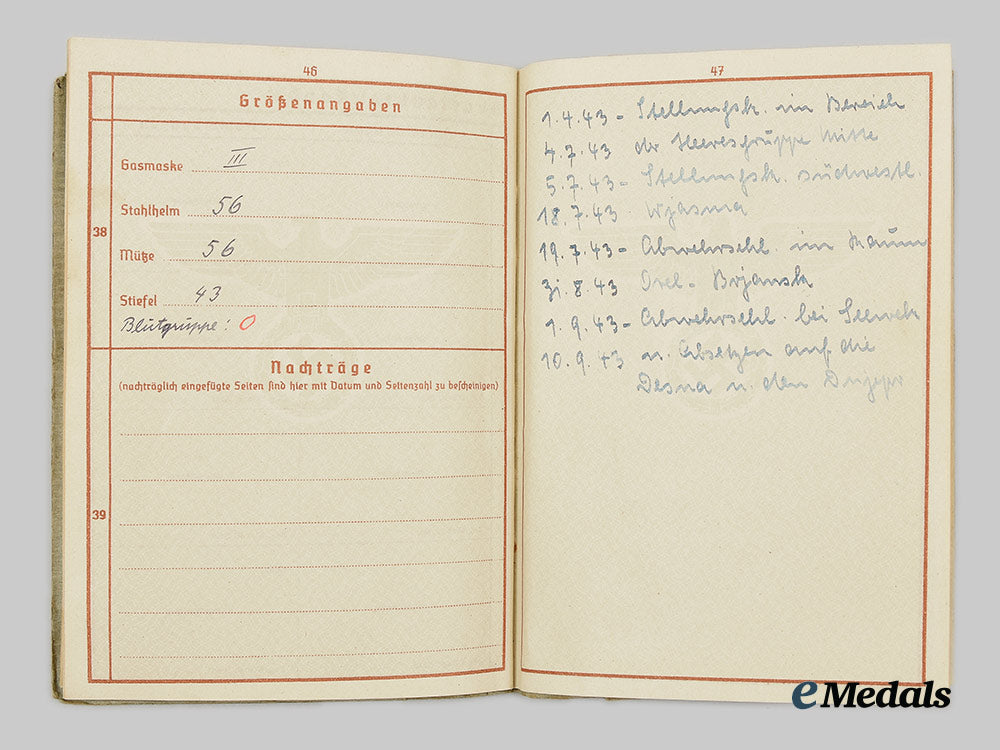 46
Größenangaben
Gasmaske III
Stahlhelm 56
38
Mütze 56
Stiefel 43
Blutgruppe: O
Nachträge
(nachträglich eingefügte Seiten sind hier mit Datum und Seitenzahl zu bescheinigen)
39
47
1.4.43 - Stellungsk. im Bereich
4.7.43 der Heeresgruppe Mitte
5.7.43 - Stellungsk. südwestl.
18.7.43 Wjasma
19.7.43 - Abwehrschl. im Raum
31.8.43 Orel - Brjansk
1.9.43 - Abwehrschl. bei Ssewsk
10.9.43 u. Absetzen auf die
Desna u. den Dnjepr
eMedals